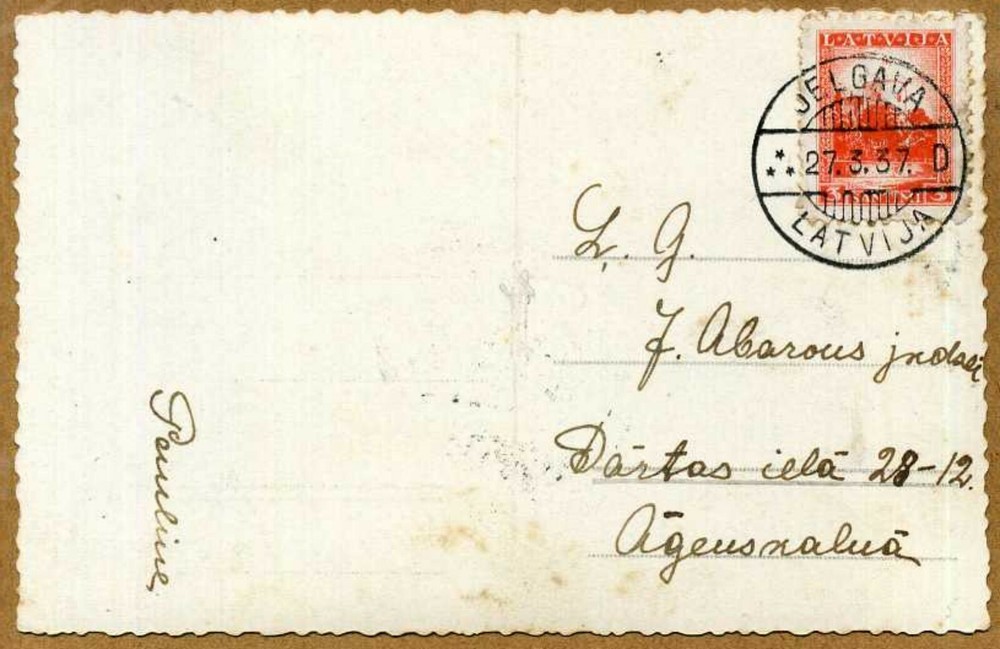 LATVIJA
JELGAVA
27.3.37. D
LATVIJA
Ļ. G.
J. Abarous jxdzei
Dārtas ielā 28-12.
Āgenskalnā
Pauline,